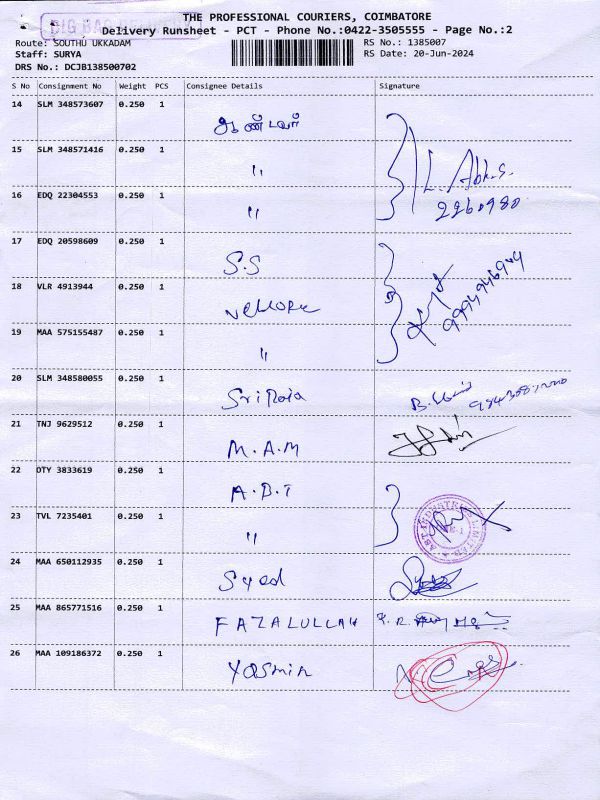 THE PROFESSIONAL COURIERS, COIMBATORE
Delivery Runsheet - PCT - Phone No.:0422-3505555 - Page No.:2
Route: SOUTHU UKKADAM RS No.: 1385007
Staff: SURYA RS Date: 20-Jun-2024
DRS No.: DCJB138500702
S No Consignment No Weight PCS Consignee Details Signature
14 SLM 348573607 0.250 1 ஆண்டவர்
15 SLM 348571416 0.250 1 "
16 EDQ 22304553 0.250 1 " 2260980
17 EDQ 20598609 0.250 1 S.S
18 VLR 4913944 0.250 1 Vellore 9994946944
19 MAA 575155487 0.250 1 "
20 SLM 348580055 0.250 1 Sri Raja
21 TNJ 9629512 0.250 1 M.A.M
22 OTY 3833619 0.250 1 A.B.T
23 TVL 7235401 0.250 1 "
24 MAA 650112935 0.250 1 Syed
25 MAA 865771516 0.250 1 FAZALULLAH
26 MAA 109186372 0.250 1 Yasmin